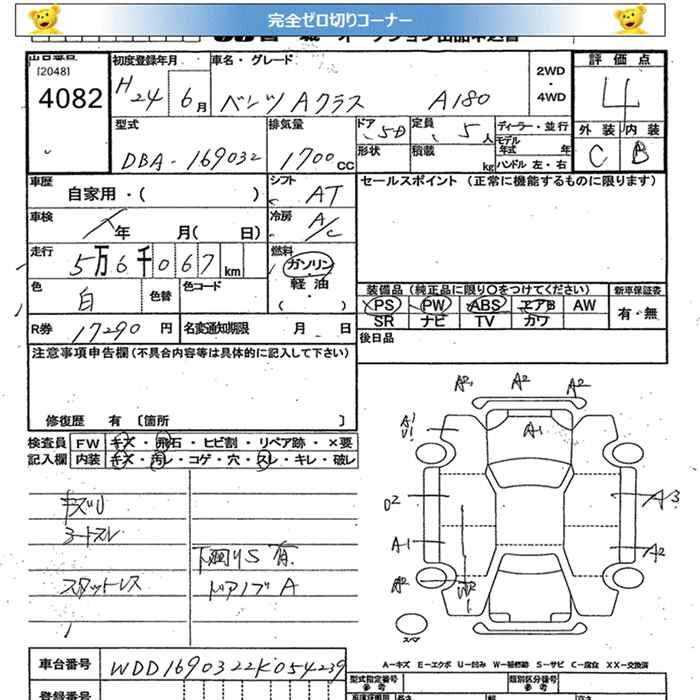 完全ゼロ切りコーナー
出品番号
[2048]
4082
初度登録年月
H24 6月
車名・グレード
ベンツ Aクラス A180
2WD
・
4WD
評価点
4
外装 内装
C B
型式
DBA-169032
排気量
1700cc
ドア
5D
定員
5人
形状
積載
kg
ディーラー・並行
モデル
年式 年
ハンドル 左・右
車歴
自家用・( )
シフト
AT
セールスポイント (正常に機能するものに限ります)
車検
年 月( 日)
冷房
A/C
走行
5万6千067km
燃料
ガソリン
軽油
( ・ )
色
白
色替
色コード
R券
17290円
名変通知期限 月 日
装備品 (純正品に限り〇をつけてください)
PS PW ABS エアB AW
SR ナビ TV カワ
新車保証書
有・無
後日品
注意事項申告欄(不具合内容等は具体的に記入して下さい)
修復歴 有 〔箇所 〕
検査員 FW キズ・飛石・ヒビ割・リペア跡・×要
記入欄 内装 キズ・汚レ・コゲ・穴・スレ・キレ・破レ
キズU
シートスレ
スタットレス
下廻りS有
ドアノブA
A2 A2 A2
A1
U1
A1
U2
A3
A1
A2
A2
スペア
A-キズ E-エクボ U-凹み W-補修跡 S-サビ C-腐食 XX-交換済
車台番号
WDD1690322K054239
登録番号
型式指定番号
参考
類別区分番号
参考
長さ
幅
高さ